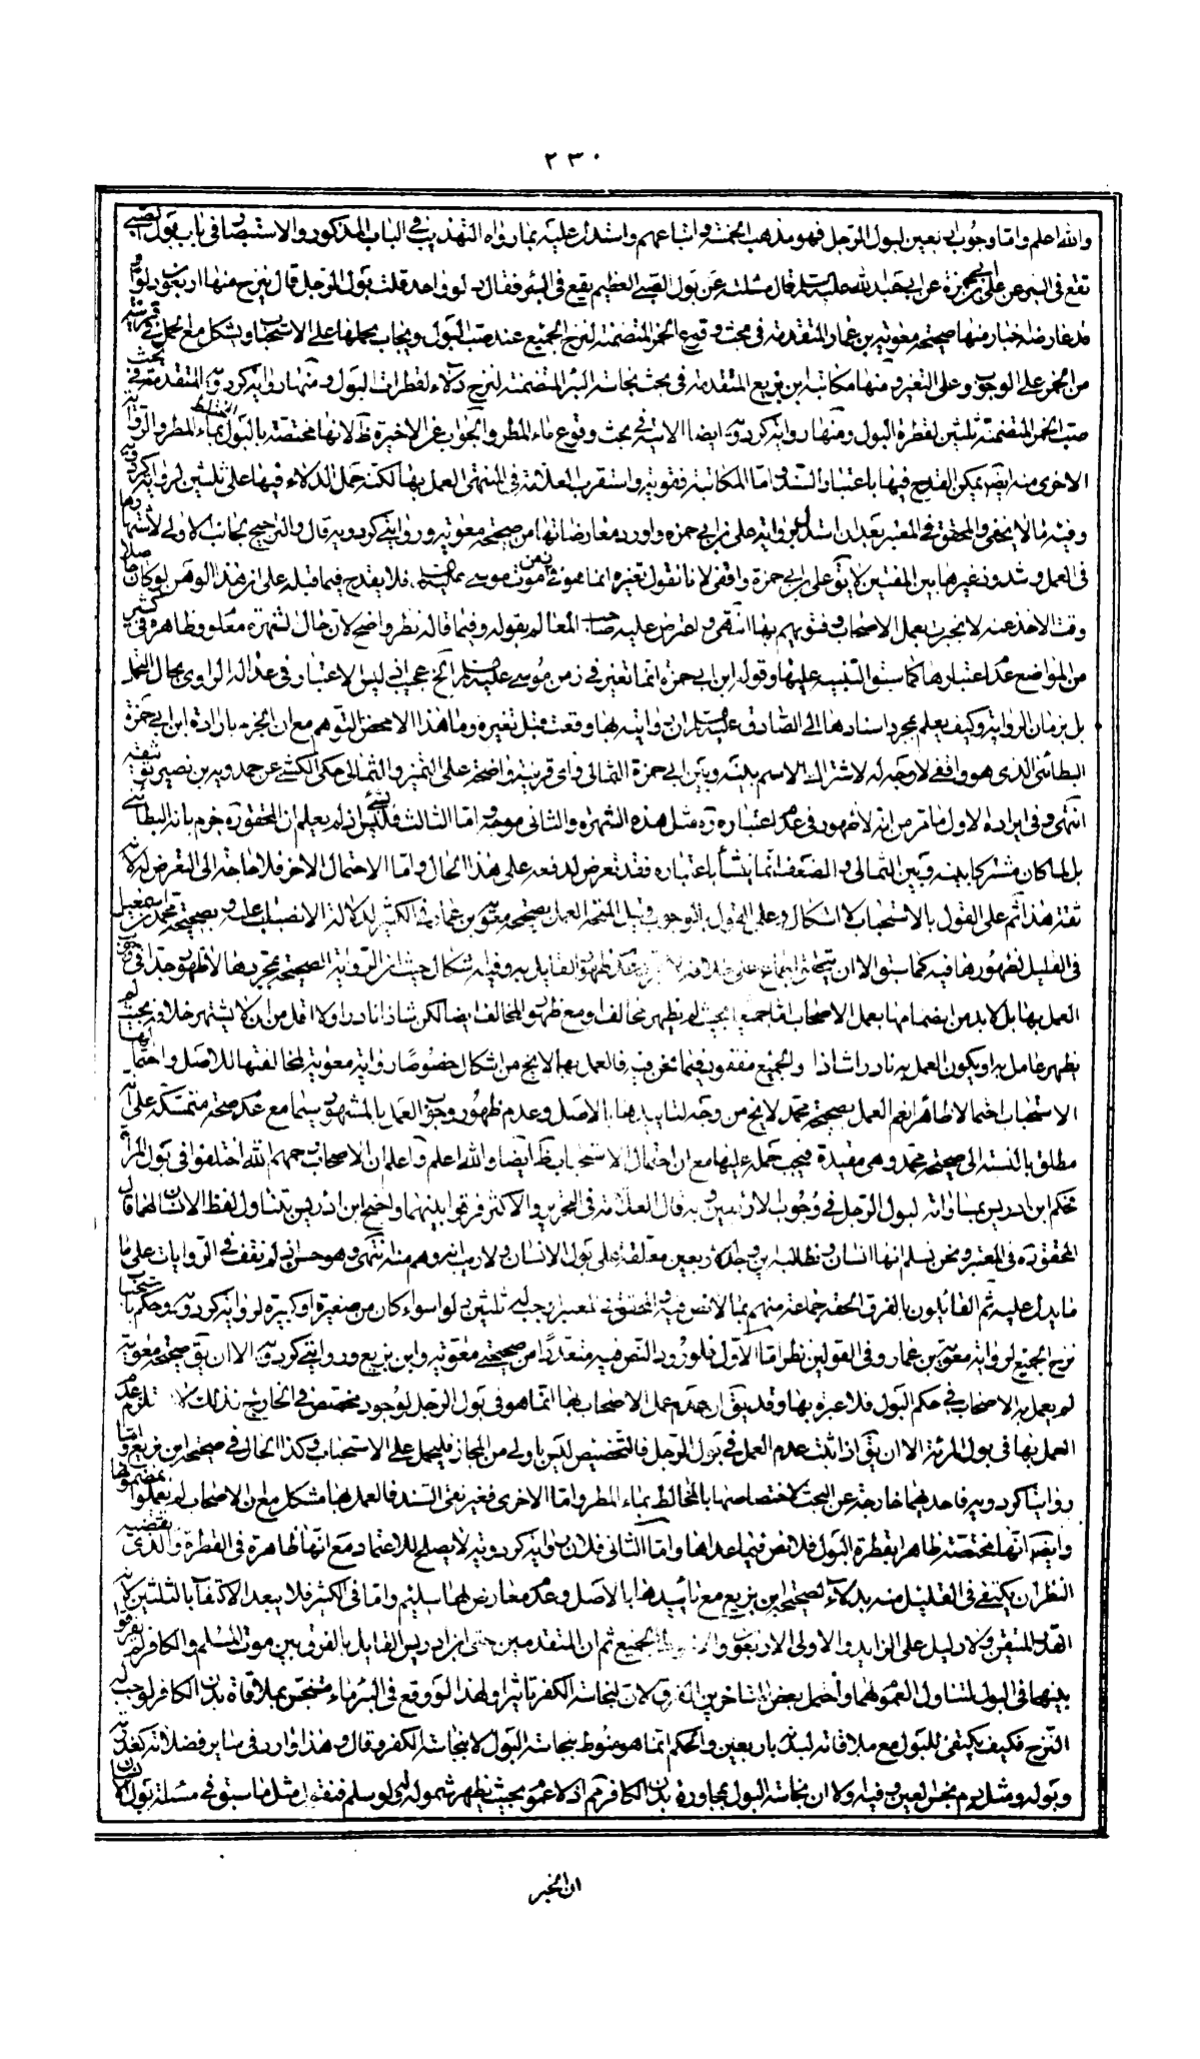 ٢٣٠
والله اعلم واما وجوب اربعين لبول الرجل فهو مذهب الخمسة واتباعهم واستدل عليه بما رواه التهذيب في الباب المذكور والاستبصار في باب بول الصبي
يقع في البئر عن علي بن ابي حمزة عن ابي عبد الله عليه السلم قال سئلته عن بول الصبي الفطيم يقع في البئر فقال دلو واحد قلت بول الرجل قال ينزح منها اربعون دلوا و
قد عارضه اخبار منها صحيحة معوية بن عمار المتقدمة في مبحث وقوع الخمر المتضمنة لنزح الجميع عند صب البول ويجاب بحملها على الاستحباب ويشكل مع الحمل في قرينيه
من الخمر على الوجوب وعلى التغير ومنها مكاتبة ابن بزيع المتقدمة في بحث نجاسة البئر المتضمنة لنزح دلاء لقطرات البول ومنها رواية كردويه المتقدمة في بحث
صب الخمر المتضمنة ثلثين لقطرة البول ومنها رواية كردويه ايضا الاتية في بحث وقوع ماء المطر والجواب عن الاخيرة ظ لانها مختصة بالبول المخالط بماء المطر والرواية
الاخرى منه ايضا يمكن القدح فيها باعتبار السند واما المكاتبة فقوية واستقرب العلامة في المنتهى العمل بها لكنه حمل الدلاء فيها على ثلثين لرواية كردويه
وفيه ما لا يخفى والمحقق في المعتبر بعد ان استدل برواية علي بن ابي حمزه واورد معارضاتها من صحيحة معوية وروايتي كردويه قال والترجيح بجانب الاولى لاشتهارها
في العمل وشذوذ غيرها بين المفتين لا يق علي بن ابي حمزة واقفي لانا نقول تغيره انما هو في زمن موت موسى عليه السلم فلا يقدح فيما قبله على ان هذا الوهن لو كان حاصلا
وقت الاخذ عنه لانجبرت بعمل الاصحاب وفتويهم بها انتهى واعترض عليه صاحب المعالم بقوله وفيما قاله نظر واضح لان حال الشهرة معلوم وظاهره في كثير
من المواضع عدم اعتبارها كما سبق التنبيه عليها وقوله ابن ابي حمزة انما تغير في زمن موسى عليه السلم الخ عجيب اذ ليس الاعتبار في عدالة الراوي بحال التحمل
بل بزمان الرواية وكيف يعلم بمجرد اسنادها الى الصادق عليه السلم ان روايته لها وقعت قبل تغيره وما هذا الا محض التوهم مع ان الجزم بارادة ابن ابي حمزة
البطائني الذي هو واقفي لا وجه له لاشتراك الاسم بينه وبين ابن ابي حمزة الثمالي واي قرينة واضحة على التميز والثمالي حكى الكشي عن حمدويه بن نصير توثيقه
انتهى وفي ايراده الاول ما مر من انه لا ظهور في عدم اعتباره ره مثل هذه الشهرة والثاني موجه واما الثالث فليس بشيء اذ لم يعلم ان المحقق ره جزم بانه البطائني
بل لما كان مشتركا بينه وبين الثمالي والضعف انما ينشأ باعتباره فقد تعرض لدفعه على هذا الحال واما الاحتمال الاخر فلا حاجة الى التعرض له لانه
ثقة هذا ثم على القول بالاستحباب لا اشكال وعلى القول بالوجوب قيل المتجه العمل بصحيحة معوية بن عمار في الكثير لدلالة الانصباب عليه وبصحيحة محمد بن اسمعيل
في القليل لظهورها فيه كما سبق الا ان يتحقق اجماع على خلافه عدم ظهور القايل به وفيه اشكال حيث ان الرواية الصحيحة بمجردها لا ظهور جدا في وجوب
العمل بها بل لا بد من انضمامها بعمل الاصحاب اما جميعا بحيث لم يظهر مخالف او مع ظهور المخالف ايضا لكن شاذا نادرا ولا اقل من ان لا يشتهر خلافه بحيث لم
يظهر عامل به او يكون العمل به نادرا شاذا والجميع مفقود فيما نحن فيه فالعمل بها لا يخ من اشكال خصوصا رواية معوية لمخالفتها للاصل واحتمالها
الاستحباب احتمالا ظاهرا نعم العمل بصحيحة محمد لا يخ من وجه لتاييدها بالاصل وعدم ظهور وجوب العمل بالمشهور سيما مع عدم صحة متمسكه على انه
مطلق بالنسبة الى صحيحة محمد وهي مقيدة فيجب حمله عليها مع ان احتمال الاستحباب ظ ايضا والله اعلم واعلم ان الاصحاب رحمهم الله اختلفوا في بول المرأة
فحكم ابن ادريس بمساواته لبول الرجل في وجوب الاربعين وبه قال العلامة في التحرير والاكثر فرقوا بينهما واحتج ابن ادريس بتناول لفظ الانسان لهما قال
المحقق ره في المعتبر ونحن نسلم انها انسان ونطالبه اين وجد الاربعين معلقة على بول الانسان ولا ريب انه وهم منه انتهى وهو حسن اذ لم نقف في الروايات على ما
يدل عليه ثم القائلون بالفرق الحقه جماعة منهم بما لا نص فيه والمحقق في المعتبر اوجب له ثلثين دلوا سواء كان من صغيرة او كبيرة لرواية كردويه وحكم باستحباب
نزح الجميع لرواية معوية بن عمار وفي القولين نظر اما الاول فلورود النص فيه متعددا من صحيحتي معوية وابن بزيع وروايتي كردويه الا ان يق صحيحة معوية
لم يعمل بها الاصحاب في حكم البول فلا عبرة بها وقد يق ان عدم عمل الاصحاب بها انما هو في بول الرجل لوجود مخصص في الخارج بذلك لا تلزم عدم
العمل بها في بول المرئة الا ان يق اذا ثبت عدم العمل في بول الرجل فالتخصيص ليس باولى من المجاز فليحمل على الاستحباب وكذا الحال في صحيحة ابن بزيع واما
روايتا كردويه فاحديهما خارجة عن البحث لاختصاصها بالمخالط بماء المطر واما الاخرى فغير نقي السند فالعمل بها مشكل مع ان الاصحاب لم يعملوا بمضمونها
وايضا انها مختصة ظاهرا بقطرة البول فلا نص فيما عداها واما الثاني فلان رواية كردويه لا يصلح للاعتماد مع انها ظاهرة في القطرة والذي يقتضيه
النظر ان يكتفى في القليل منه بدلاء لصحيحة ابن بزيع مع تأييدها بالاصل وعدم معارض لها سليم واما في الكثير فلا يبعد الاكتفاء بالثلثين لانه
القدر المتيقن ولا دليل على الزايد والاولى الاربعون والاحوط الجميع ثم ان المتقدمين حتى ابن ادريس القايل بالفرق بين موت المسلم والكافر لم يفرقوا
بينهما في البول لتناول العموم لهما واحتمل بعض المتاخرين الفرق لان لنجاسة الكفر تاثيرا ولهذا لو وقع في البئر ماء متنجس بملاقاة بدن الكافر لوجب له
النزح فكيف يكتفى للبول مع ملاقاته لبدنه باربعين والحكم انما هو منوط بنجاسة البول لا بنجاسة الكفر وقال وهذا وارد في ساير فضلاته كعذرته
وبوله ومثل دم نجس العين وفيه اولا ان نجاسة البول بمجاورة بدن الكافر مم اذ لا عموم بحيث يظهر شموله له ولو سلم فنقول مثل ما سبق في مسئلة بول الانسان
ان الخبر